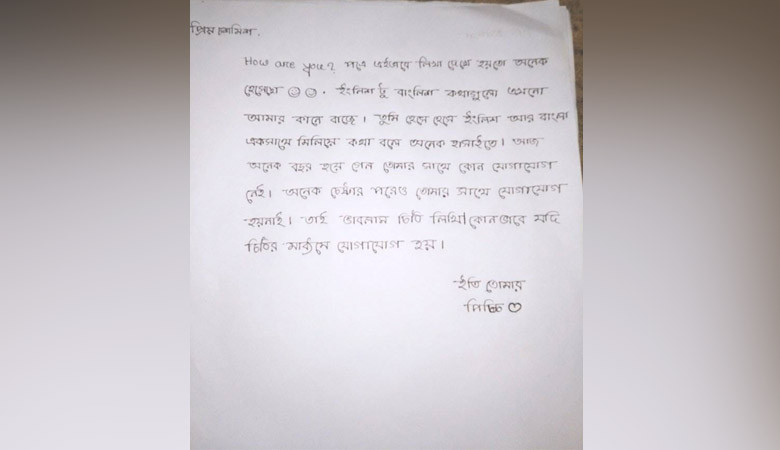 প্রিয়
How are you? পত্রে এইভাবে লিখা দেখে হয়তো অনেক
হেসেছো ☺☺. ইংলিশ টু বাংলিশ কথাগুলো এখনো
আমার কানে বাজে। তুমি হেসে হেসে ইংলিশ আর বাংলা
একসাথে মিলিয়ে কথা বলে অনেক হাসাইতে। আজ
অনেক বছর হয়ে গেল তোমার সাথে কোন যোগাযোগ
নেই। অনেক চেষ্টার পরেও তোমার সাথে যোগাযোগ
হয়নাই। তাই ভাবলাম চিঠি লিখি। কোনভাবে যদি
চিঠির মাধ্যমে যোগাযোগ হয়।
ইতি তোমার
পিচ্চি ♡